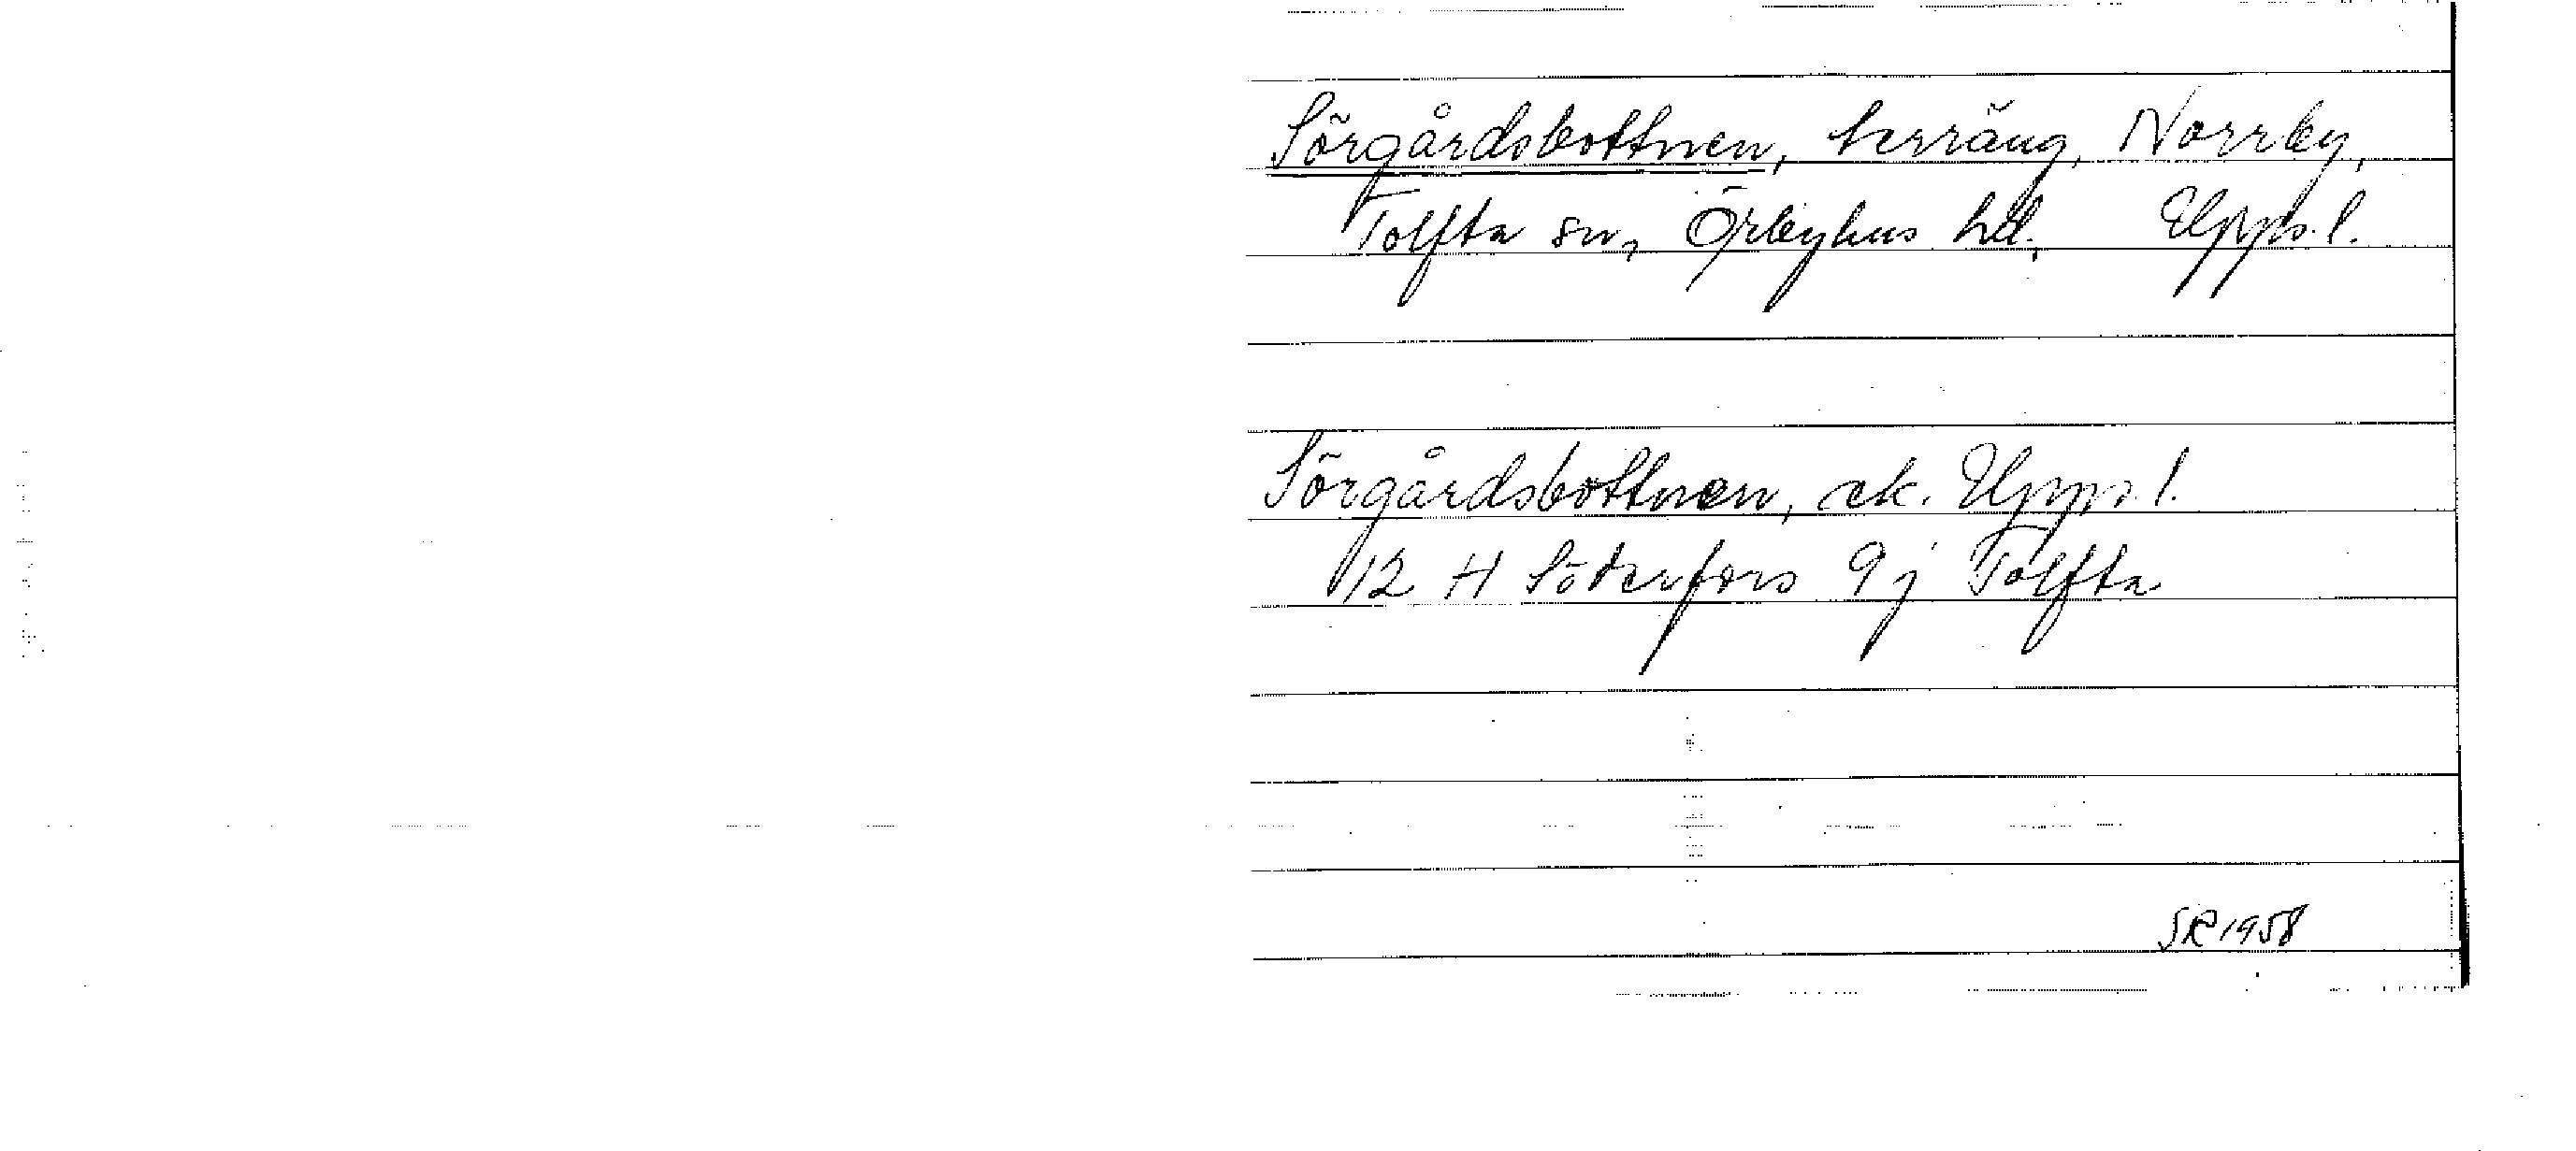 Sörgårdsbottnen, terräng, Norrby,
Tolfta sn, Örbyhus hd, Upps. l.
Sörgårdsbottnen, ek. Upps. l.
12 H Söderfors 9j Tolfta
SR 1958